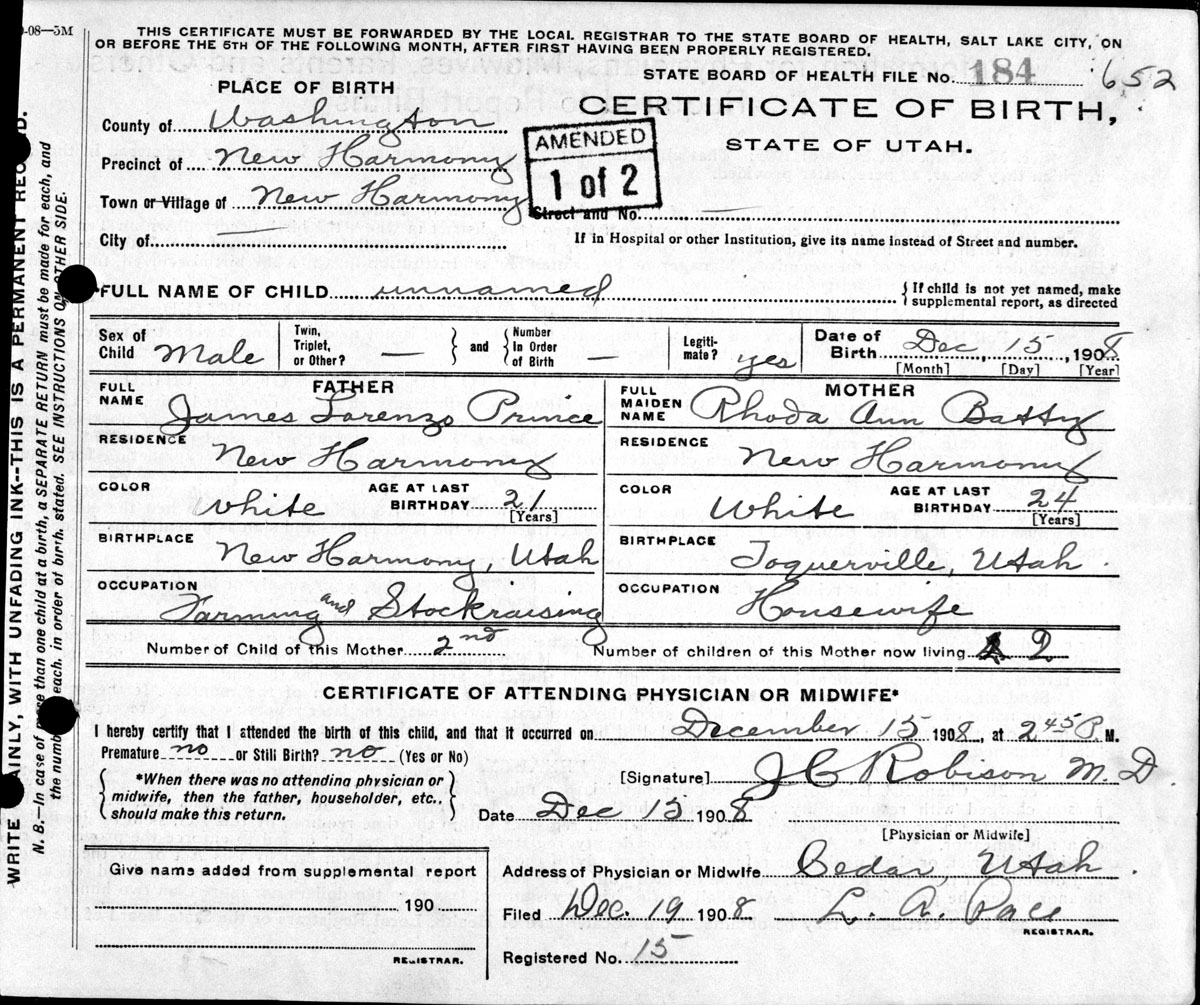 0-08—3M
THIS CERTIFICATE MUST BE FORWARDED BY THE LOCAL REGISTRAR TO THE STATE BOARD OF HEALTH, SALT LAKE CITY, ON
OR BEFORE THE 5TH OF THE FOLLOWING MONTH, AFTER FIRST HAVING BEEN PROPERLY REGISTERED.
STATE BOARD OF HEALTH FILE No. 184 652
PLACE OF BIRTH
CERTIFICATE OF BIRTH,
STATE OF UTAH.
AMENDED
1 of 2
County of Washington
Precinct of New Harmony
Town or Village of New Harmony
Street and No. —
City of
If in Hospital or other Institution, give its name instead of Street and number.
FULL NAME OF CHILD unnamed
{ If child is not yet named, make
supplemental report, as directed
Sex of Child Male
Twin, Triplet, or Other? — } and { Number In Order of Birth —
Legitimate? yes
Date of Birth Dec, 15, 1908
[Month] [Day] [Year]
FATHER
FULL NAME James Lorenzo Prince
MOTHER
FULL MAIDEN NAME Rhoda Ann Batty
RESIDENCE New Harmony
RESIDENCE New Harmony
COLOR White AGE AT LAST BIRTHDAY 21 [Years]
COLOR White AGE AT LAST BIRTHDAY 24 [Years]
BIRTHPLACE New Harmony, Utah
BIRTHPLACE Toquerville, Utah
OCCUPATION Farming and Stockraising
OCCUPATION Housewife
Number of Child of this Mother 2nd
Number of children of this Mother now living 2
CERTIFICATE OF ATTENDING PHYSICIAN OR MIDWIFE*
I hereby certify that I attended the birth of this child, and that it occurred on December 15 1908, at 2 45 P. M.
Premature no or Still Birth? no (Yes or No)
{ *When there was no attending physician or
midwife, then the father, householder, etc.,
should make this return. }
[Signature] J C Robison M D
Date Dec 15 1908
[Physician or Midwife]
Address of Physician or Midwife Cedar, Utah
Give name added from supplemental report
190
REGISTRAR.
Filed Dec. 19 1908 L. A. Pace
REGISTRAR.
Registered No. 15
WRITE PLAINLY, WITH UNFADING INK--THIS IS A PERMANENT RECORD.
N. B.—In case of more than one child at a birth, a SEPARATE RETURN must be made for each, and
the number of each, in order of birth, stated. SEE INSTRUCTIONS ON OTHER SIDE.